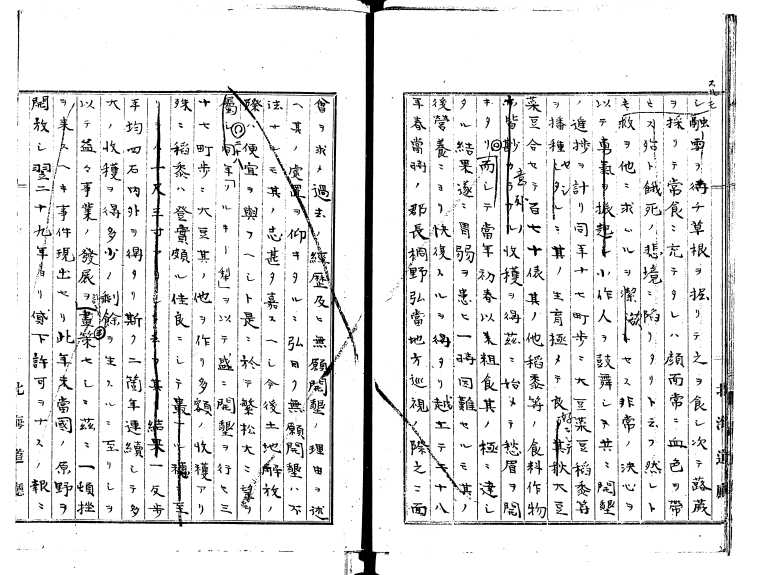 シ融雪ヲ待チ草根ヲ掘リテ之ヲ食シ次テ蕗蕨
ヲ採リテ常食ニ充テタレハ顔面常ニ血色ヲ帯
ヒス殆ト餓死ノ悲境ニ陥リタリト云フ然レト
モ救ヲ他ニ求ムルヲ潔トセス非常ノ決心ヲ
以テ勇気ヲ振起シ小作人ヲ鼓舞シ共ニ開墾
ノ進捗ヲ計リ同年十七町歩ニ大豆菜豆稲黍等
ヲ播種セシニ其ノ生育極メテ良ク其秋大豆
菜豆合セテ百七十俵其ノ他稲黍等ノ食料作物
モ皆 収穫ヲ得茲ニ始メテ愁眉ヲ開
キタリ而シテ當年初春以来粗食其ノ極ニ達シ
タル結果遂ニ胃弱ヲ患ヒ一時困難セルモ其ノ
後営養ニヨリ快復スルヲ得タリ越エテ二十八
年春當時ノ郡長桐野弘當地方巡視ノ際之ニ面
會ヲ求メ過去ノ経歴及ヒ無願開墾ノ理由ヲ述
ヘ其ノ處置ヲ仰キタルニ弘曰ク無願開墾ハ不
法ナルモ其ノ志甚タ嘉スヘシ今後土地解放ノ
際ハ便宜ヲ與フヘシト是ニ於テ繁松大ニ
シ同年 ルキー ヲ以テ盛ニ開墾ヲ行セ三
十七町歩ニ大豆其ノ他ヲ作リ多額ノ収穫アリ
殊ニ稲黍ハ登實頗ル佳良ニシテ最ナル穂ニ至
リ一尺三寸 其結果一反歩
平均四石内外ヲ得タリ斯ク二箇年連續シテ多
大ノ収穫ヲ得多少ノ剰餘ヲ生スルニ至リシヲ
以テ益々事業ノ発展ヲ畫策セシニ茲ニ一頓挫
ヲ来スヘキ事件現出セリ此年末當國ノ原野ヲ
開放シ翌二十九年ヨリ貸下許可ヲナスノ報ニ
北海道廳